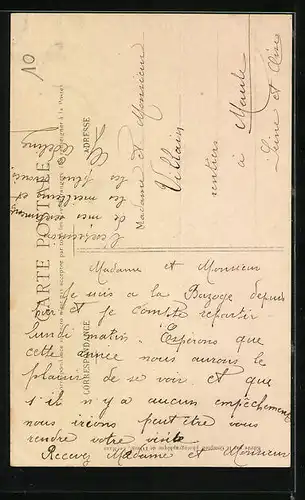 10
CARTE POSTALE
CORRESPONDANCE
ADRESSE
Madame et Monsieur
Villain
rentiers
à Maule
Seine et Oise
Madame et Monsieur
Je suis a la Bazoge depuis
hier et je compte repartir
lundi matin. Espérons que
cette année nous aurons le
plaisir de se voir et que
s'il n'y a aucun empêchement
nous irions peut être vous
rendre votre visite
Recevez Madame et Monsieur
l'expression
de mes sentiments
les meilleurs et
les plus